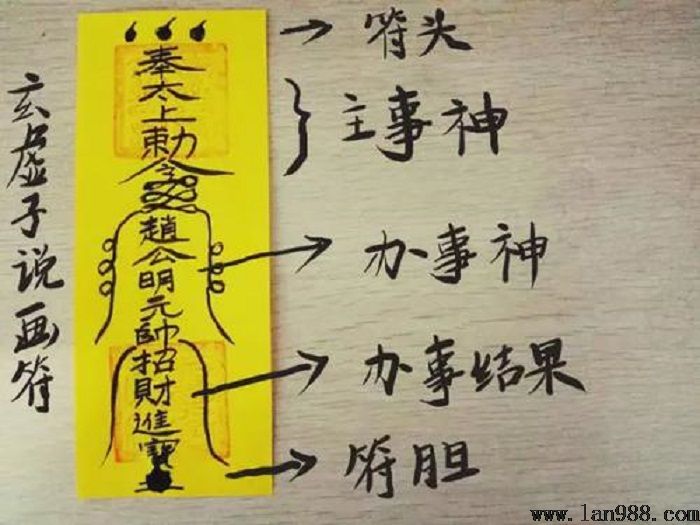 玄虚子说画符
奉太上勅令
趙公明元帥招財進寶
符头
主事神
办事神
办事结果
符胆
www.lan988.com